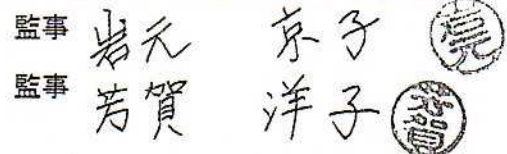 監事 岩元 京子
監事 芳賀 洋子 芳賀